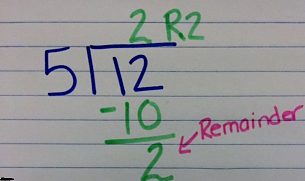 2 R2
5 12
-10
Remainder
2